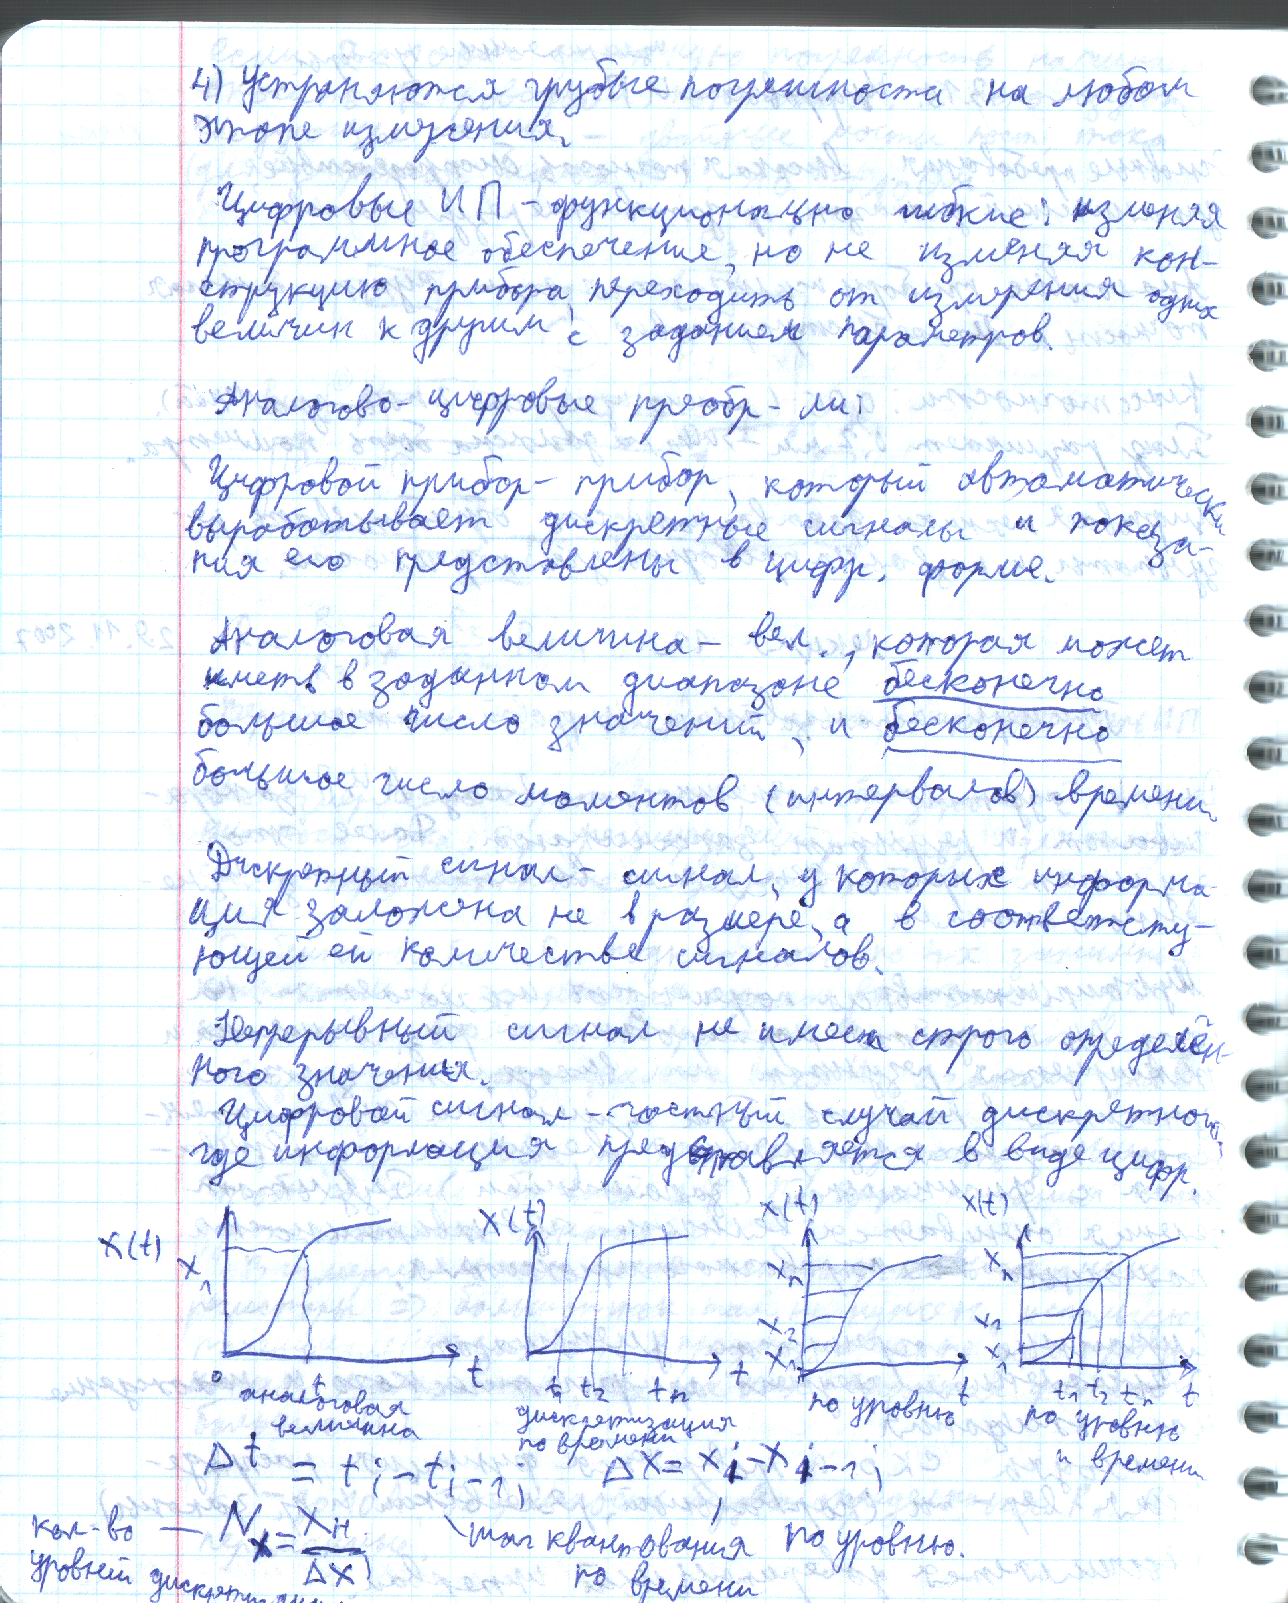 4) Устраняются грубые погрешности на любом
этапе измерения.
Цифровые ИП - функционально гибкие: изменяя
программное обеспечение, но не изменяя кон-
струкцию прибора, переходить от измерения одних
величин к другим, с заданием параметров.
Аналогово-цифровые преобр-ли:
Цифровой прибор - прибор, который автоматически
вырабатывает дискретные сигналы и показа-
ния его представлены в цифр. форме.
Аналоговая величина - вел., которая может
иметь в заданном диапазоне бесконечно
большое число значений, и бесконечно
большое число моментов (интервалов) времени.
Дискретный сигнал - сигнал, у которых информа-
ция заложена не в размере, а в соответству-
ющей ей количестве сигналов.
Непрерывный сигнал не имеет строго определён-
ного значения.
Цифровой сигнал - частный случай дискретного,
где информация представляется в виде цифр.
x(t) x(t) x(t) x(t)
x1 xn xn
x2 x2
x1 x1
0 t t t1 t2 tn t t t1 t2 tn t
аналоговая величина
дискретизация по времени
по уровню
по уровню и времени
Δt = ti - ti-1; Δx = xi - xi-1;
кол-во — Nx = Xн / ΔX
уровней
шаг квантования по уровню.
по времени